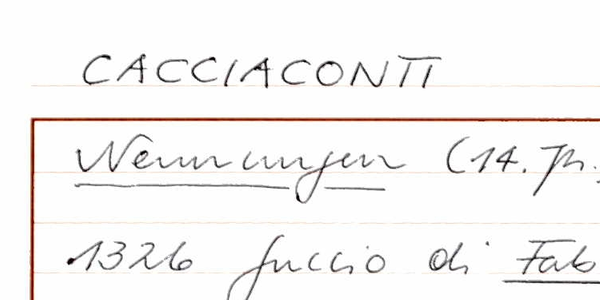 CACCIACONTI
Nennungen (14. Jh.
1326 Guccio di Fab